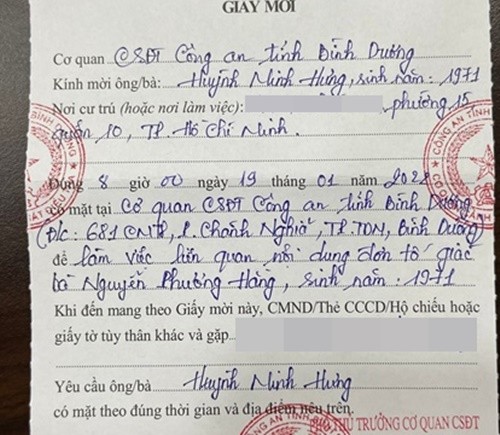 GIẤY MỜI
Cơ quan CSĐT Công an tỉnh Bình Dương
Kính mời ông/bà: Huỳnh Minh Hưng, sinh năm: 1971
Nơi cư trú (hoặc nơi làm việc): phường 15
quận 10, TP. Hồ Chí Minh.
Đúng 8 giờ 00 ngày 19 tháng 01 năm
có mặt tại Cơ quan CSĐT Công an tỉnh Bình Dương
(Đ/c: 681 CMT8, P. Chánh Nghĩa, TP. TDM, Bình Dương
để làm việc liên quan nội dung đơn tố giác
bà Nguyễn Phương Hằng, sinh năm: 1971
Khi đến mang theo Giấy mời này, CMND/Thẻ CCCD/Hộ chiếu hoặc
giấy tờ tùy thân khác và gặp
Yêu cầu ông/bà Huỳnh Minh Hưng
có mặt theo đúng thời gian và địa điểm nêu trên.
PHÓ THỦ TRƯỞNG CƠ QUAN CSĐT